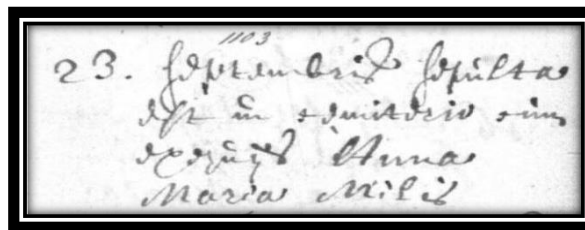 1103
23. septembris sepulta
est in cemiterio cum
exequijs Anna
Maria Milis